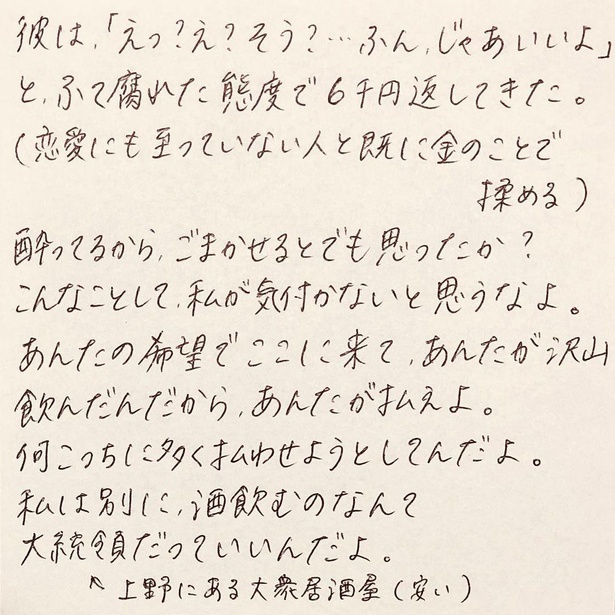 彼は、「えっ?え?そう?…ふん、じゃあいいよ」
と、ふて腐れた態度で6千円返してきた。
(恋愛にも至っていない人と既に金のことで
揉める)
酔ってるから、ごまかせるとでも思ったか?
こんなことして、私が気付かないと思うなよ。
あんたの希望でここに来て、あんたが沢山
飲んだんだから、あんたが払えよ。
何こっちに多く払わせようとしてんだよ。
私は別に、酒飲むのなんて
大統領だっていいんだよ。
↖上野にある大衆居酒屋(安い)